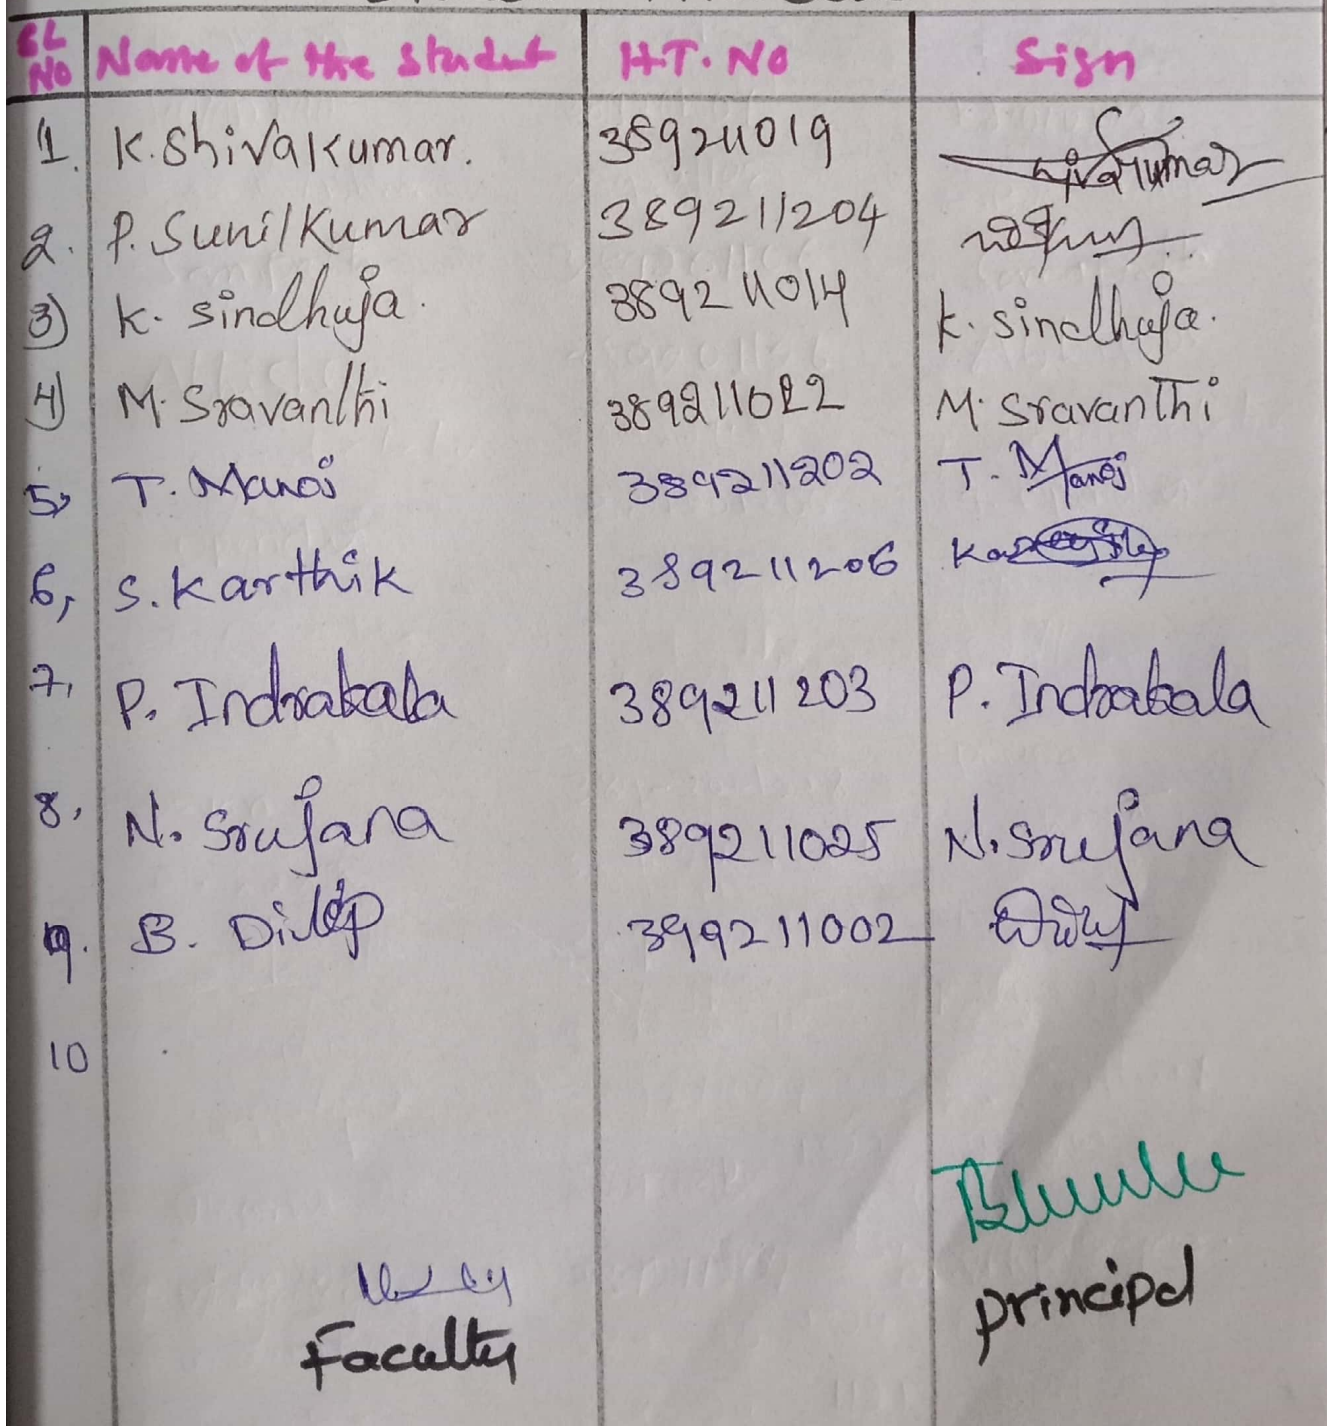 SL No Name of the Student H.T. No Sign
1. K. Shivakumar. 389211019
2. P. Sunil Kumar 389211204
3) K. Sindhuja. 389211014 K. Sindhuja.
4) M. Sravanthi 389211022 M. Sravanthi
5, T. Manoj 389211202 T. Manoj
6, S. Karthik 389211206
7, P. Indrakala 389211203 P. Indrakala
8, N. Srujana 389211025 N. Srujana
9. B. Dilip 399211002
10
Faculty
principal